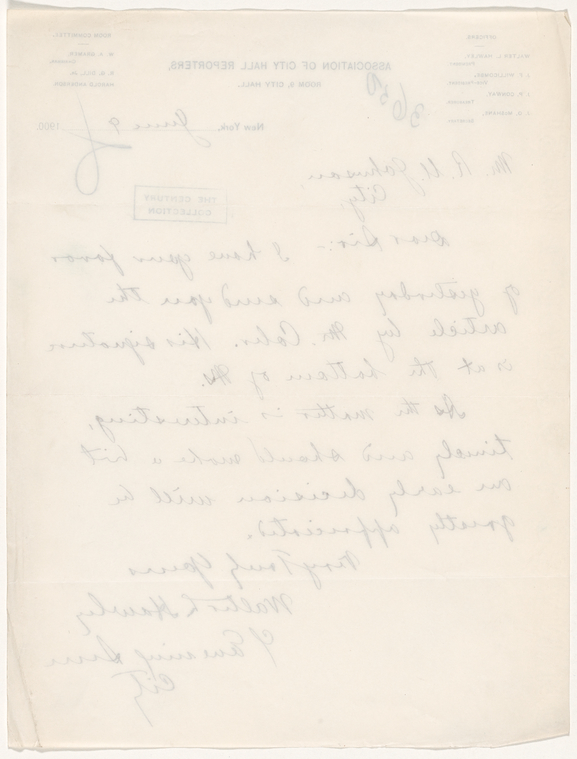 OFFICERS.
WALTER L. HAWLEY,
President.
Vice-President.
Treasurer.
Secretary.
ASSOCIATION OF CITY HALL REPORTERS,
ROOM 9, CITY HALL.
ROOM COMMITTEE.
Chairman.
HAROLD ANDERSON.
3650
New York, June 9 1900
Mr. R. U. Johnson,
City
THE CENTURY
COLLECTION
Dear Sir:- I have your favor
of yesterday and send you the
article by Mr. Coler. His signature
is at the bottom of Ms.
As the matter is interesting,
timely and should make a hit
an early decision will be
greatly appreciated.
Very Truly Yours
Walter L Hawley
Evening Sun
City